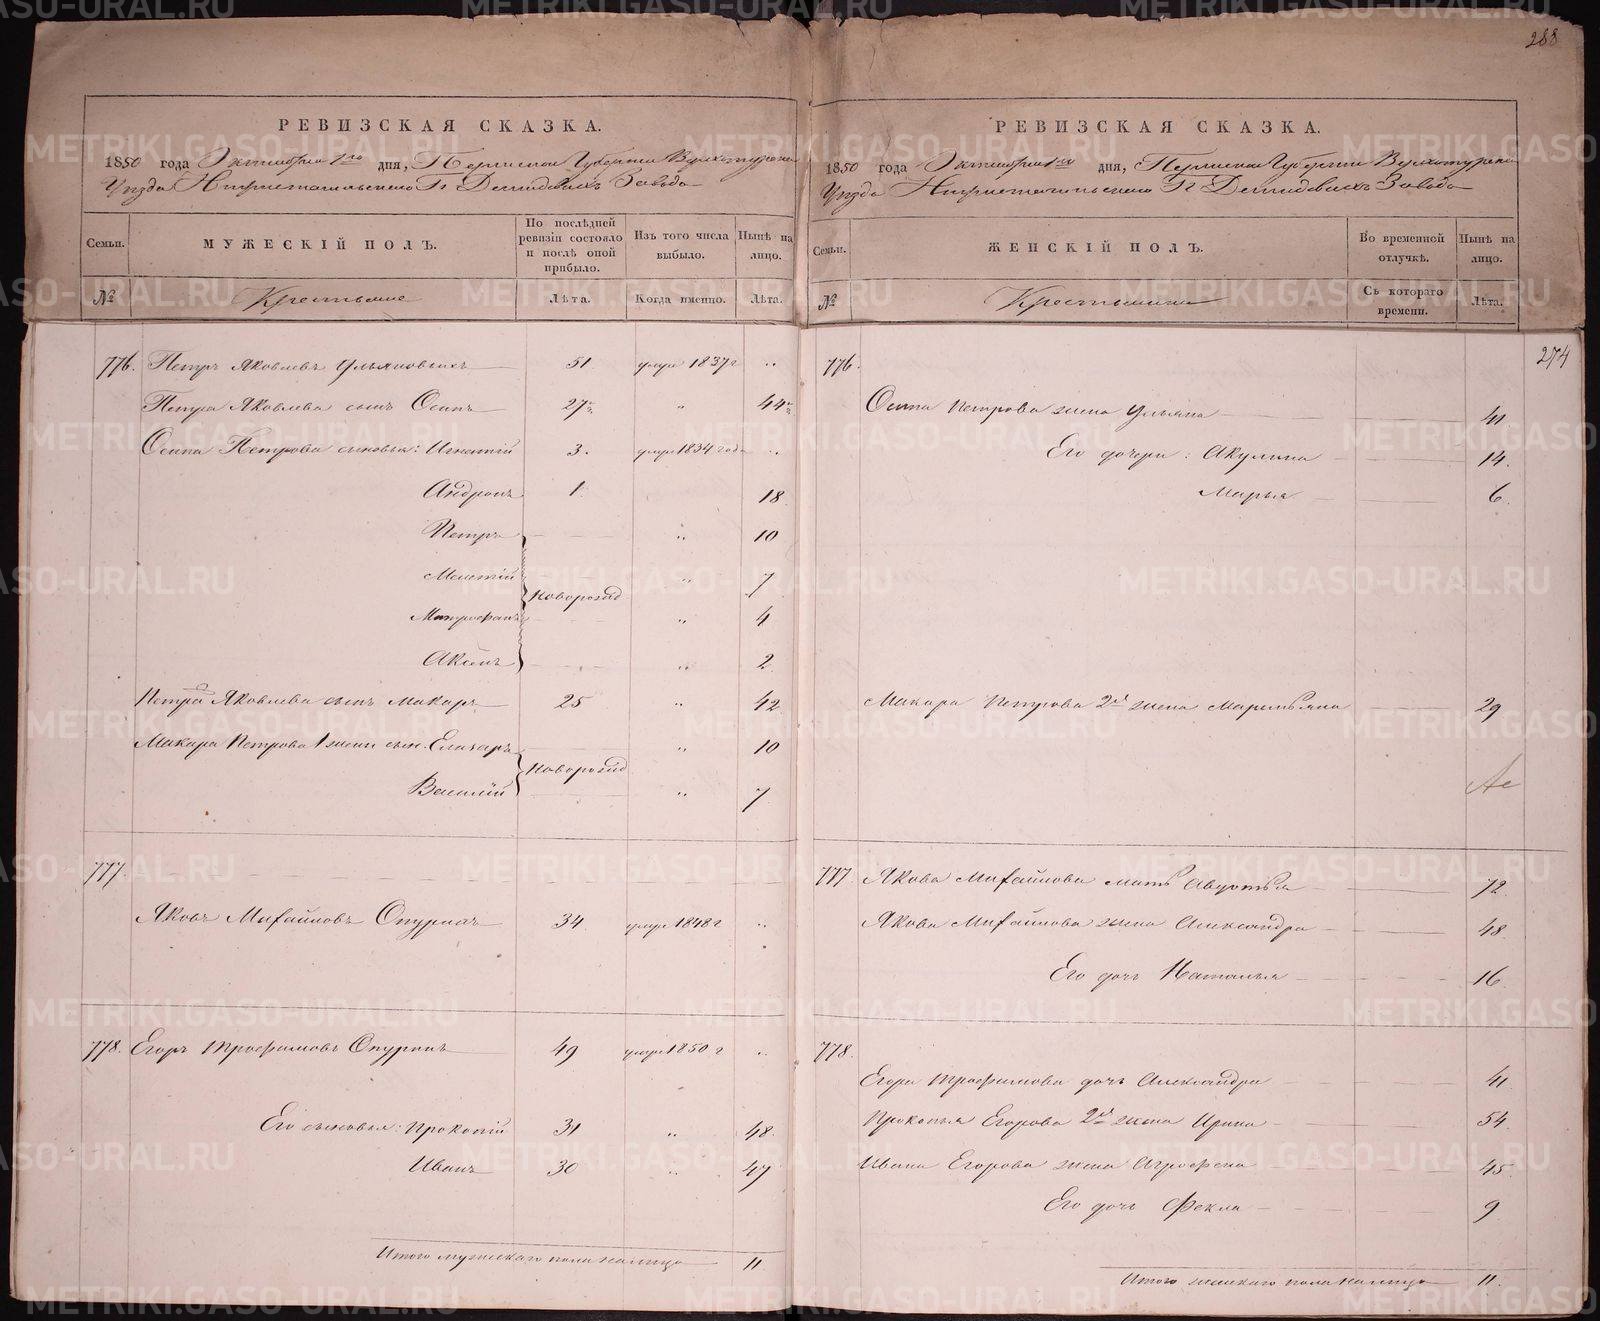 288
РЕВИЗСКАЯ СКАЗКА.
1850 года Октября 1го дня, Пермской Губернии Верхотурска
Уѣзда Нижнетагильскаго П Демидовыхъ Завода
Семьи.
МУЖЕСКІЙ ПОЛЪ.
По послѣдней ревизіи состояло и послѣ оной прибыло.
Изъ того числа выбыло.
Нынѣ на лицо.
№
Крестьяне
Лѣта.
Когда именно.
Лѣта.
776. Петръ Яковлевъ Ульяновыхъ 51. умре 1837 г ..
Петра Яковлева сынъ Осипъ 27 1/2 " 44 1/2
Осипа Петрова сыновья: Игнатій 3. умре 1834 года ..
Андронъ 1. 18
Петръ .. 10
Мелетій " 7
Новорожд
Митрофанъ " 4
Аксенъ " 2
Петра Яковлева сынъ Макаръ 25 " 42
Макара Петрова 1 жены сын. Елизаръ " 10
Новорожд
Василій " 7
777.
Яковъ Михайловъ Опуринъ 34 умре 1848 г ..
778. Егоръ Трофимовъ Опуринъ 49 умре 1850 г ..
Его сыновья: Прокопій 31 " 48.
Иванъ 30 " 47
Итого мужескаго пола налицо 11
РЕВИЗСКАЯ СКАЗКА.
1850 года Октября 1го дня, Пермской Губерніи Верхотурска
Уѣзда Нижнетагильскаго П Демидовыхъ Завода
Семьи.
ЖЕНСКІЙ ПОЛЪ.
Во временной отлучкѣ.
Нынѣ на лицо.
№
Крестьянки
Съ котораго времени.
Лѣта.
274
776.
Осипа Петрова жена Ульяна 41
Его дочери: Акулина 14.
Марья 6.
Макара Петрова 2я жена Маремьяна 29
777. Якова Михайлова мать Авдотья 72
Якова Михайлова жена Александра 48.
Его дочь Наталья 16.
778.
Егора Трофимова дочь Александра 41
Прокопья Егорова 2я жена Ирина 54.
Ивана Егорова жена Агрофена 45.
Его дочь Фекла 9
Итого женскаго пола налицо 11.
METRIKI.GASO-URAL.RU